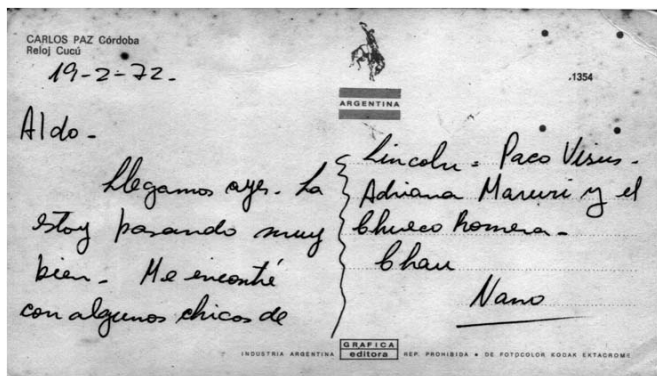 CARLOS PAZ Córdoba
Reloj Cucú
19-2-72.-
.1354
ARGENTINA
Aldo-
Llegamos ayer. La
estoy pasando muy
bien.- Me encontré
con algunos chicos de
Lincoln - Paco Visus-
Adriana Maruri y el
Chueco Romera-
Chau
Nano
GRAFICA
editora
INDUSTRIA ARGENTINA
REP. PROHIBIDA • DE FOTOCOLOR KODAK EKTACROME